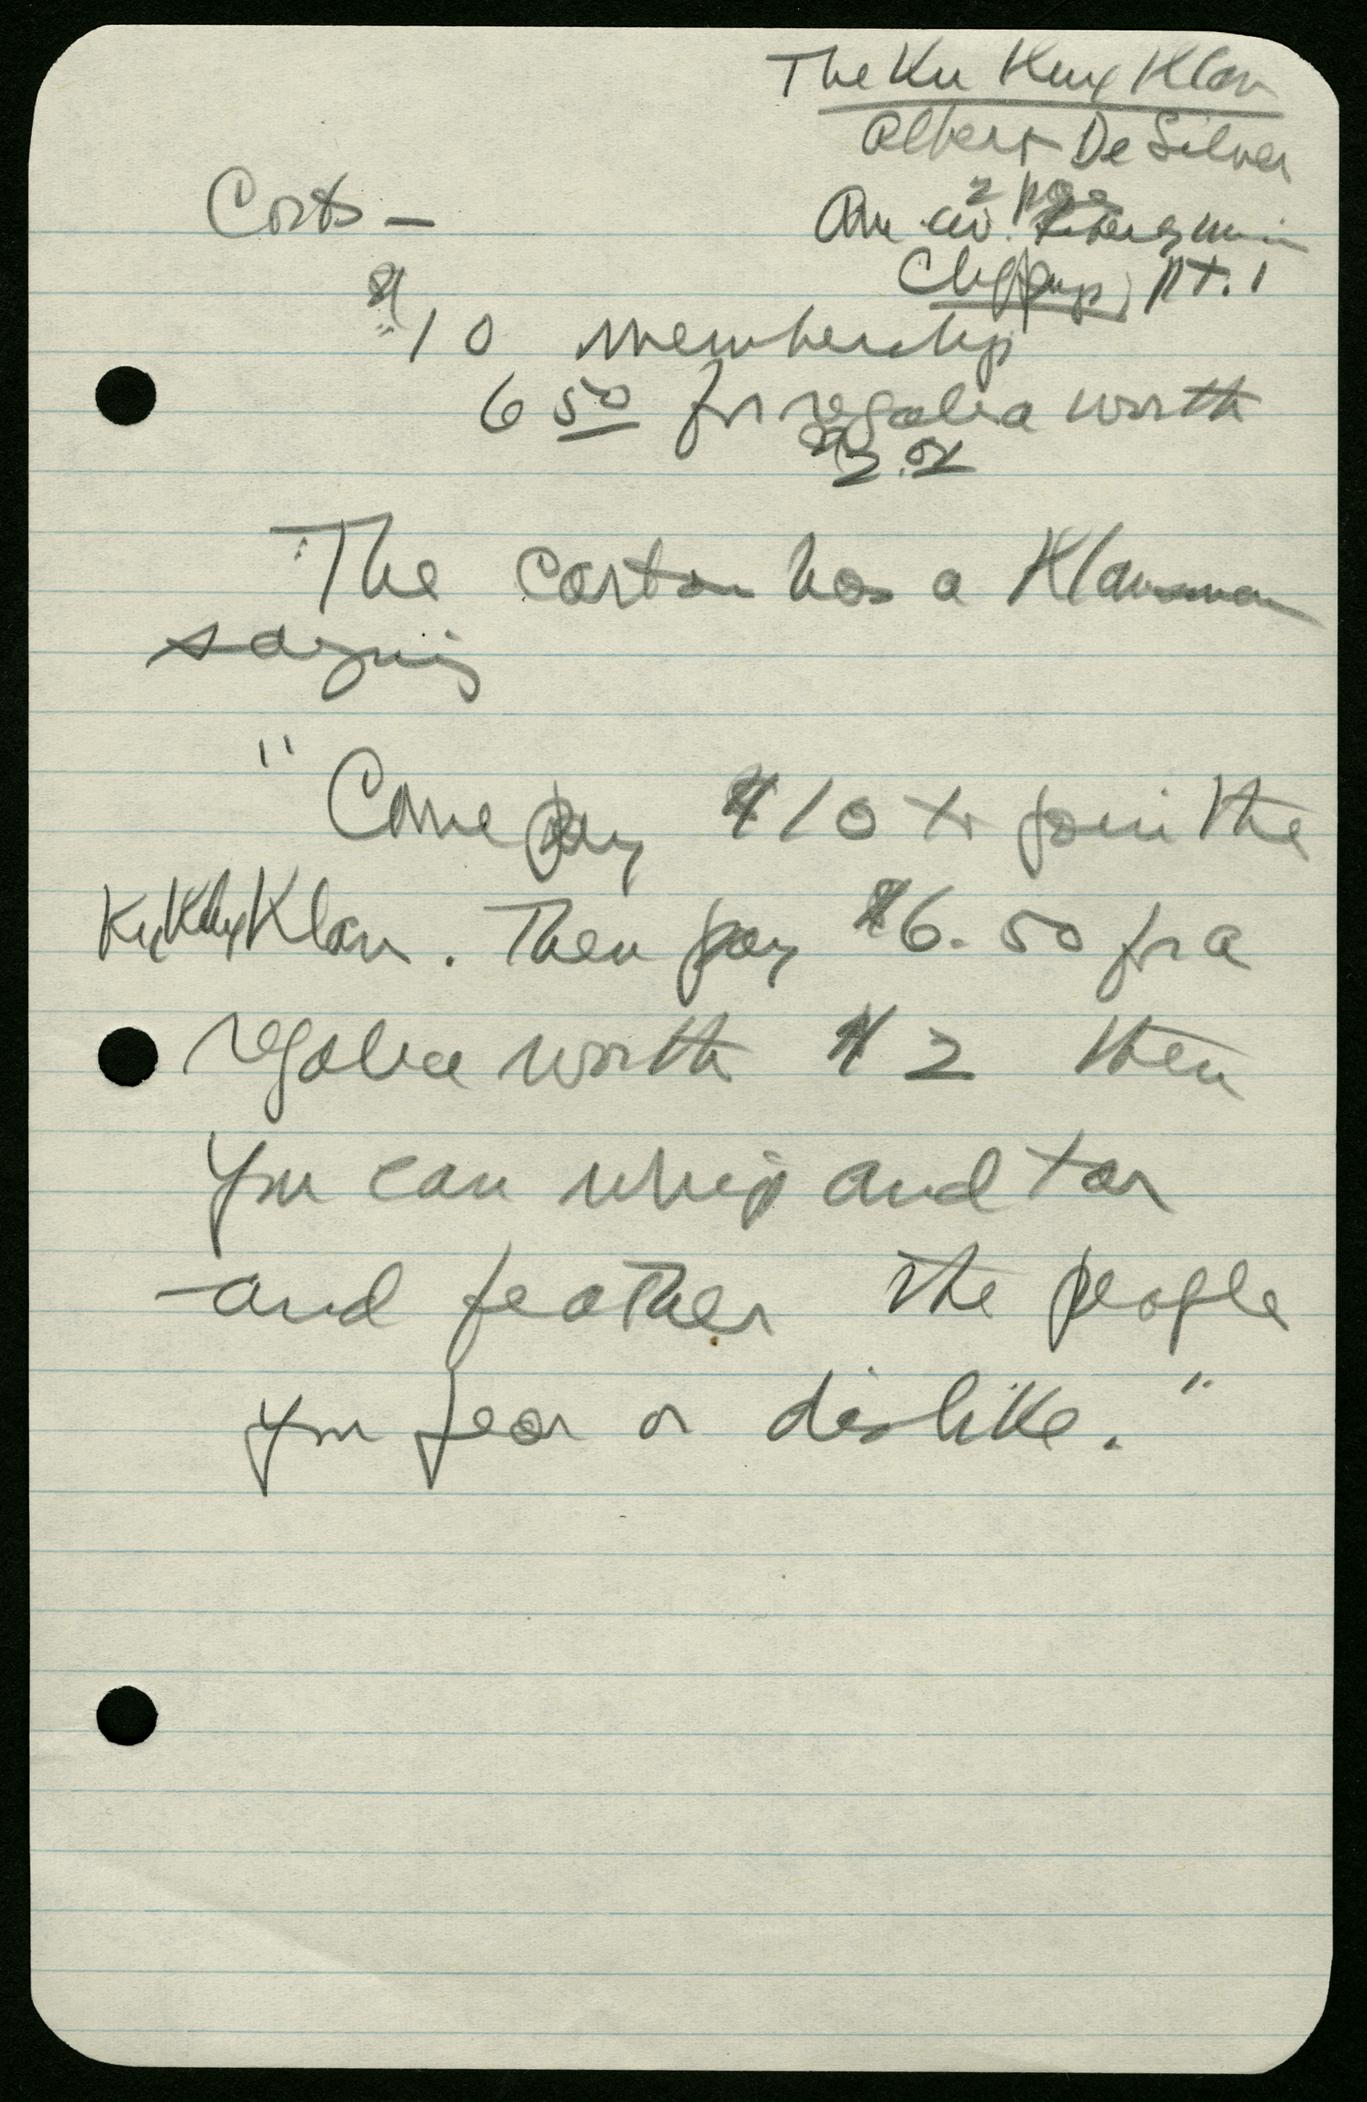 The Ku Klux Klan
Albert De Silver
2 pgs
Costs —
Am civ. Liberty Union
Clippings, pt. 1
$10 membership
6 50 for regalia worth
$2.00
The carton has a Klansman
saying
"Come pay $10 to join the
Ku Klux Klan. Then pay $6.50 for a
regalia worth $2 then
you can whip and tar
and feather the people
you fear or dislike."